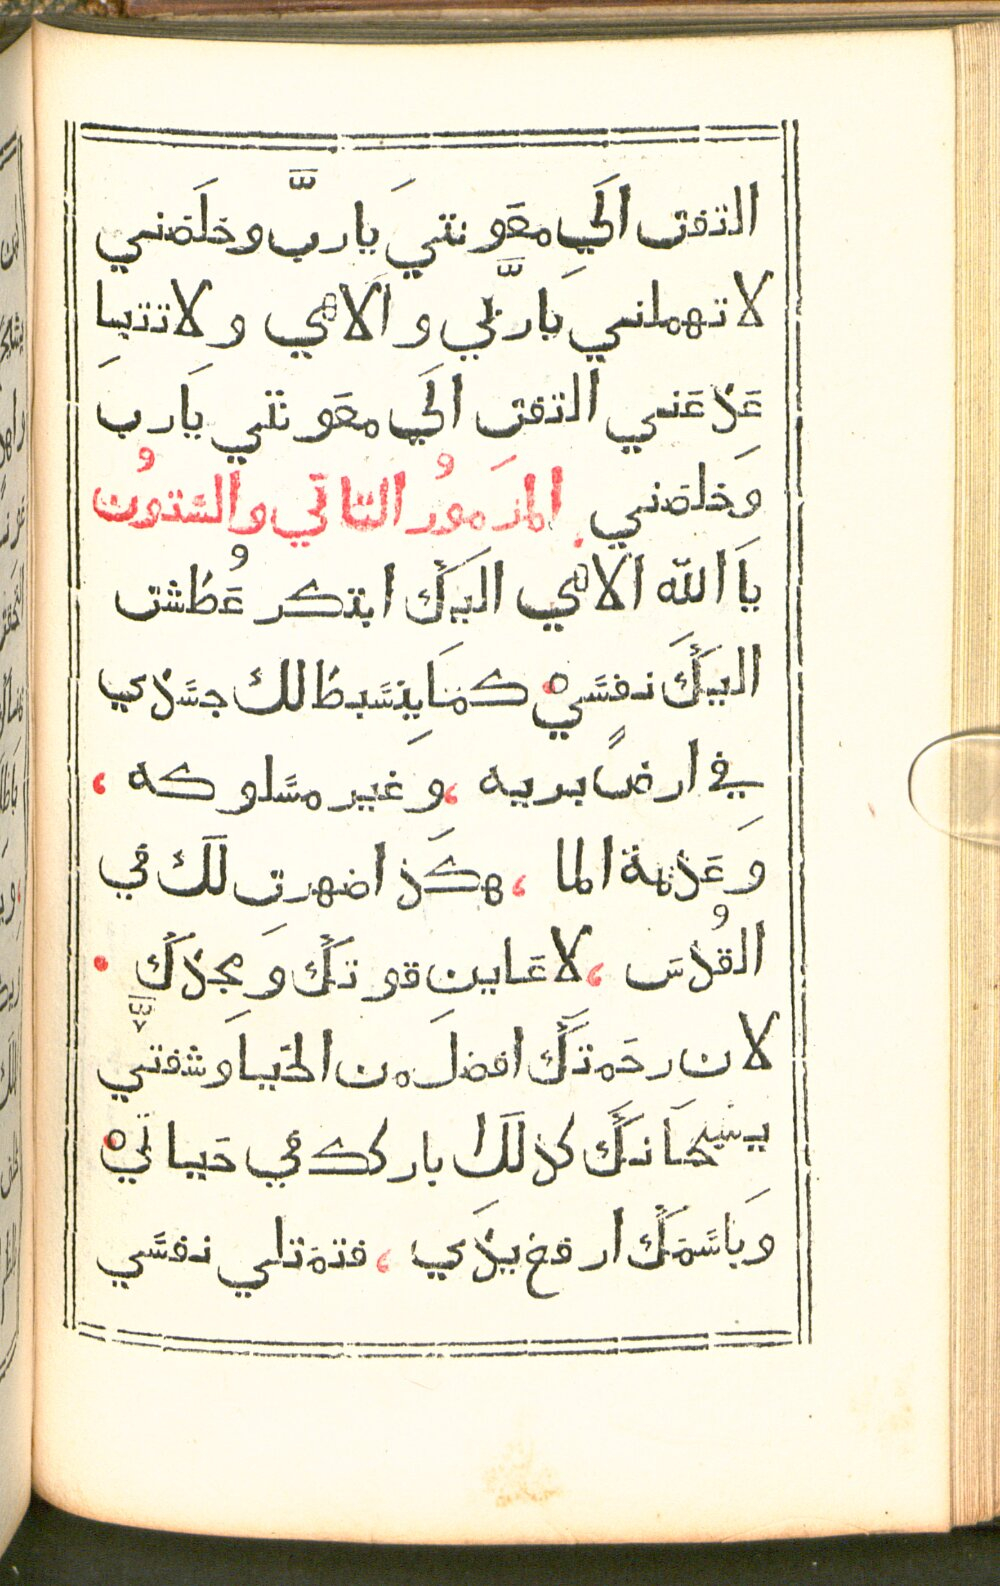 التفت الَي معَونتي يَاربَّ وخلَصني
لا تهملني ياربَّي والَاهي ولا تتباِ
عَدعَني التفت الَي معَونتي يَارب
وَخلصَني المزمورُ الثاني والستونُ
يَا الله الَاهي اليَكَ ابتكر عُطشت
اليَكَ نفسَي كمَا ينسَبط لك جسَدي
في ارضٍ بريه ، وغير مسَلوكه ،
وَعَدمة الما ، هكَذ اضهرت لَك في
القُدسَ ، لاعَاين قوتكَ وَمجدكَ
لان رحَمتكَ افضل من الحَياوَشفتي
يسَبحَانكَ كذلَك باركك في حَياتي
وَبَاسَمكَ ارفع يدَي ، فتمَتلي نفسَي